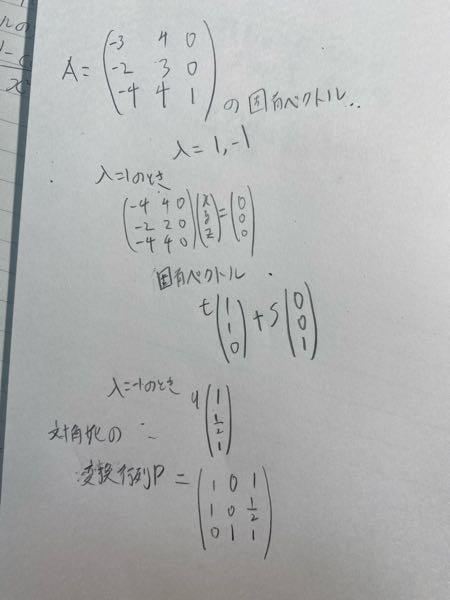 A = (-3 4 0
-2 3 0
-4 4 1) の固有ベクトル..
λ = 1, -1
λ=1のとき
(-4 4 0
-2 2 0
-4 4 0)(x
y
z) = (0
0
0)
固有ベクトル
t(1
1
0) + S(0
0
1)
λ=-1のとき u(1
1/2
1)
対角化の
変換行列P = (1 0 1
1 0 1/2
0 1 1)